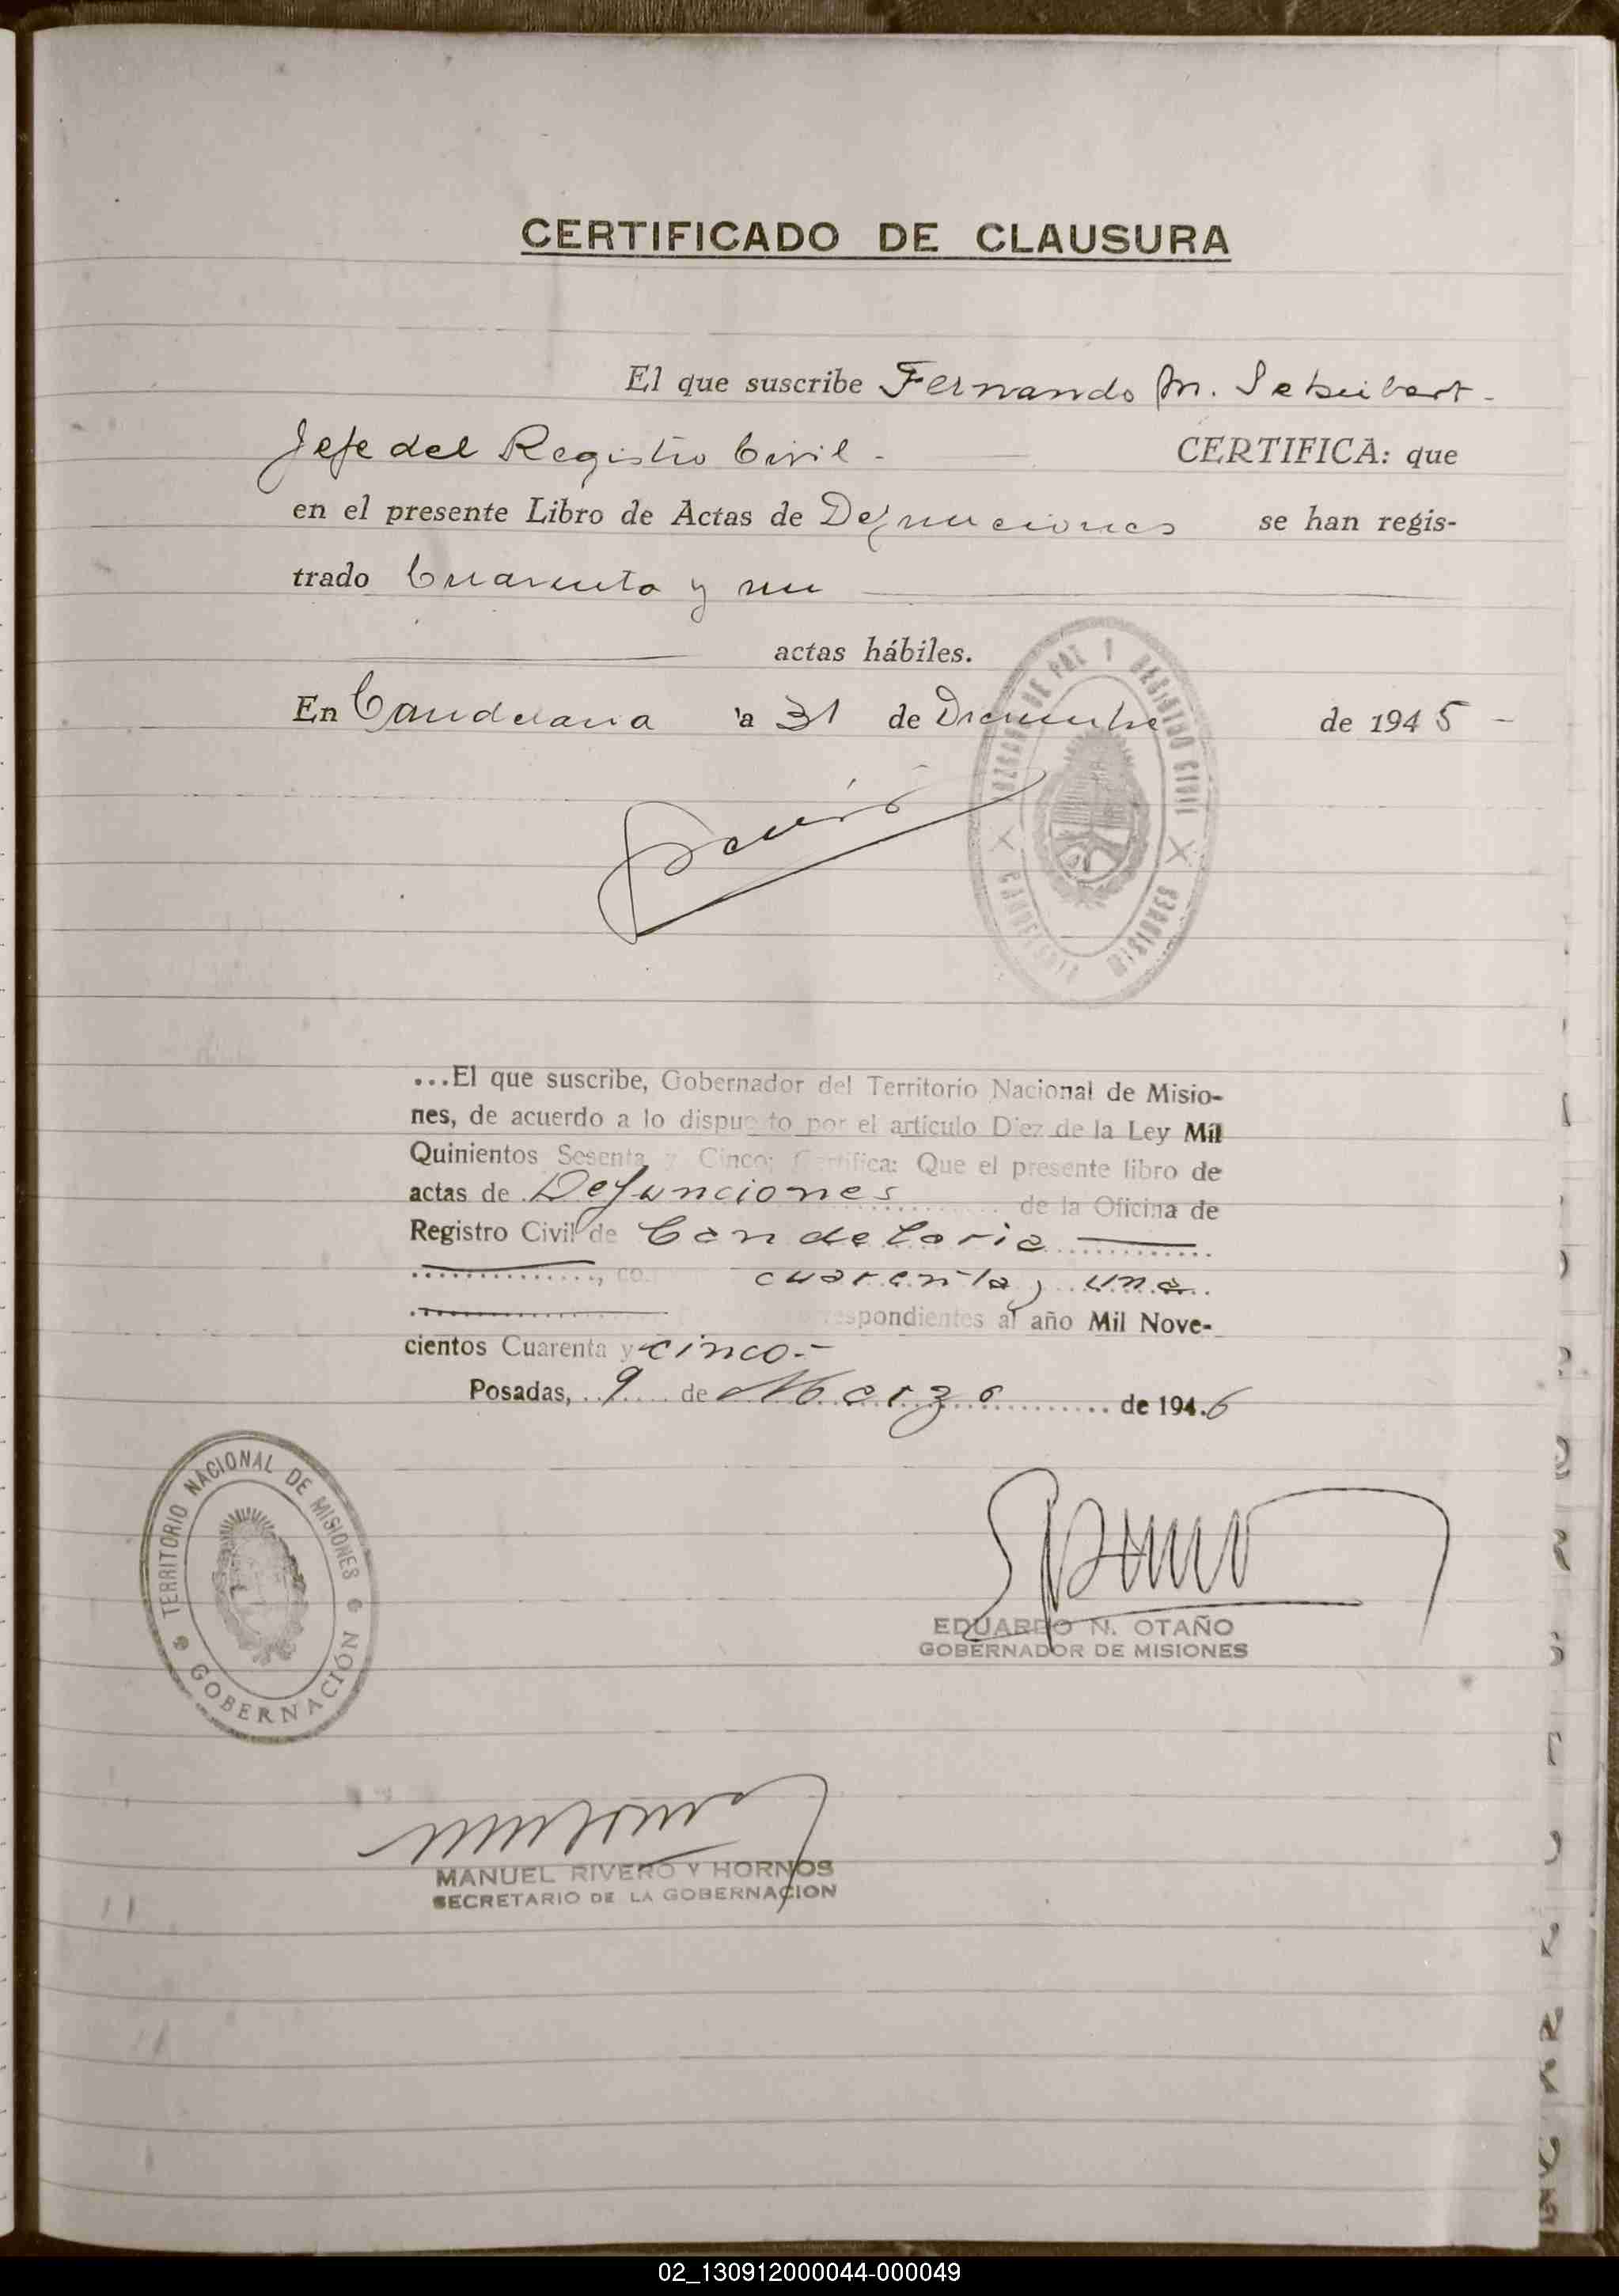 CERTIFICADO DE CLAUSURA
El que suscribe Fernando M.
Jefe del Registro Civil - CERTIFICA: que
en el presente Libro de Actas de Defunciones se han regis-
trado Cuarenta y un
actas hábiles.
En Candelaria a 31 de Diciembre de 1945 -
JUZGADO DE PAZ Y REGISTRO CIVIL
CANDELARIA MISIONES
...El que suscribe, Gobernador del Territorio Nacional de Misio-
nes, de acuerdo a lo dispuesto por el artículo Diez de la Ley Mil
Quinientos Sesenta y Cinco; Certifica: Que el presente libro de
actas de Defunciones de la Oficina de
Registro Civil de Candelaria
, co cuarenta y una
respondientes al año Mil Nove-
cientos Cuarenta y cinco.-
Posadas, 9 de Marzo de 1946
TERRITORIO NACIONAL DE MISIONES
GOBERNACIÓN
EDUARDO N. OTAÑO
GOBERNADOR DE MISIONES
MANUEL RIVERO Y HORNOS
SECRETARIO DE LA GOBERNACION
02_130912000044-000049